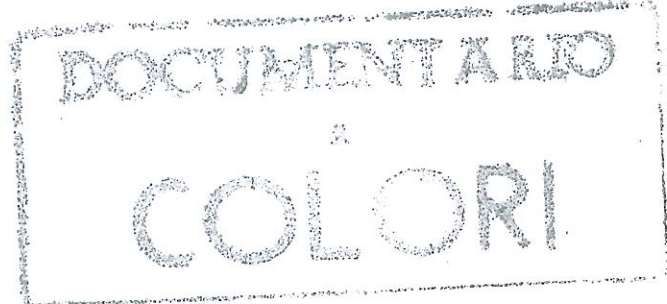 DOCUMENTARIO
A
COLORI